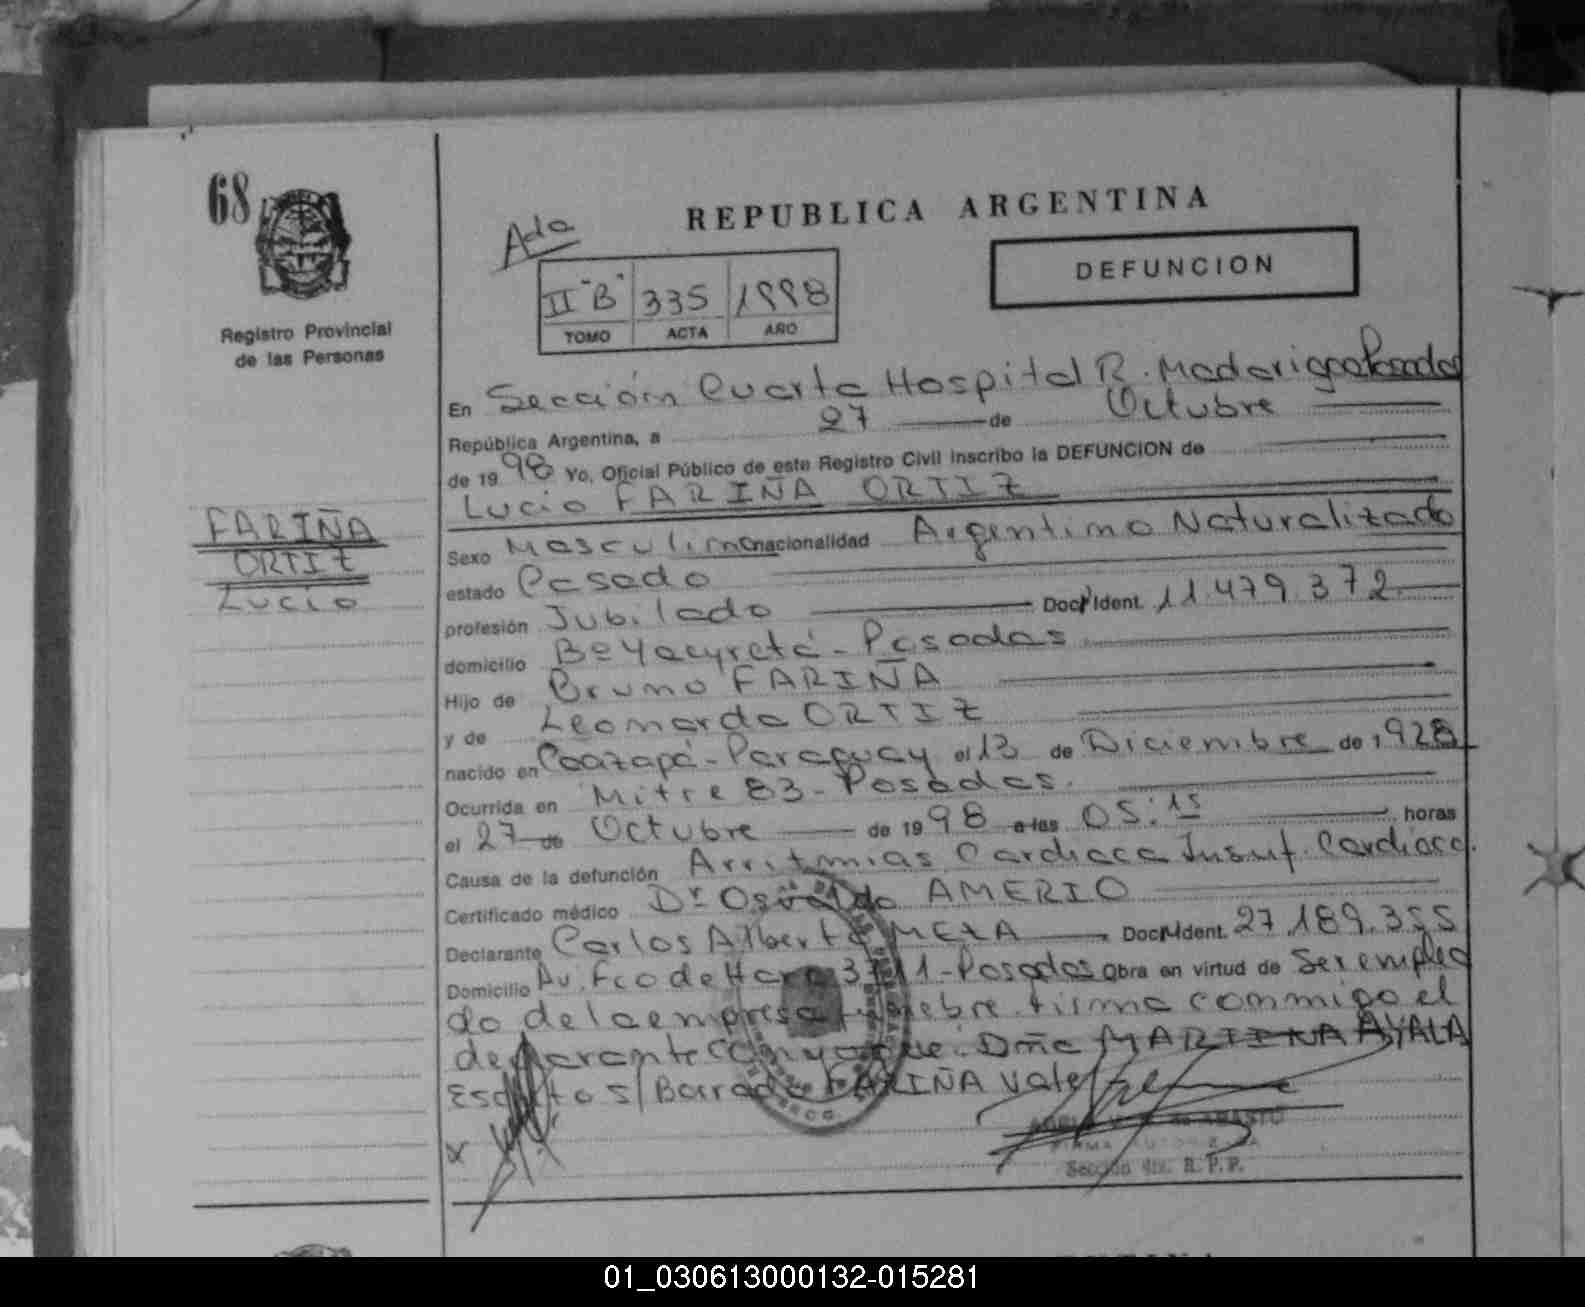 68
REPUBLICA ARGENTINA
Ada
DEFUNCION
II "B" 335 1998
TOMO ACTA AÑO
Registro Provincial
de las Personas
En Sección Cuarta Hospital R. Madariaga Posadas
República Argentina, a 27 de Octubre
de 19 98 Yo, Oficial Público de este Registro Civil inscribo la DEFUNCION de
Lucio FARIÑA ORTIZ
FARIÑA
ORTIZ
Lucio
Sexo Masculino nacionalidad Argentino Naturalizado
estado Casado
profesión Jubilado Doc. Ident. 11.479.372
domicilio Bº Yacyretá - Posadas
Hijo de Bruno FARIÑA
y de Leonarda ORTIZ
nacido en Caazapá - Paraguay el 13 de Diciembre de 1928
Ocurrida en Mitre 83 - Posadas.
el 27 de Octubre de 19 98 a las 05:15 horas
Causa de la defunción Arritmias Cardiaca Insuf. Cardiaca.
Certificado médico Dr Osvaldo AMERIO
Declarante Carlos Alberto MEZA Doc. Ident. 27.189.355
Domicilio Av. Fco de Haro 3711 - Posadas Obra en virtud de Ser emplea
do de la empresa fúnebre. firma conmigo el
declarante Cónyugue: Dña MARTINA AYALA
Escrito s/ Borrado FARIÑA Vale
x
FIRMA AUTORIZADA
Sección 4ta. R.P.P.
01_030613000132-015281